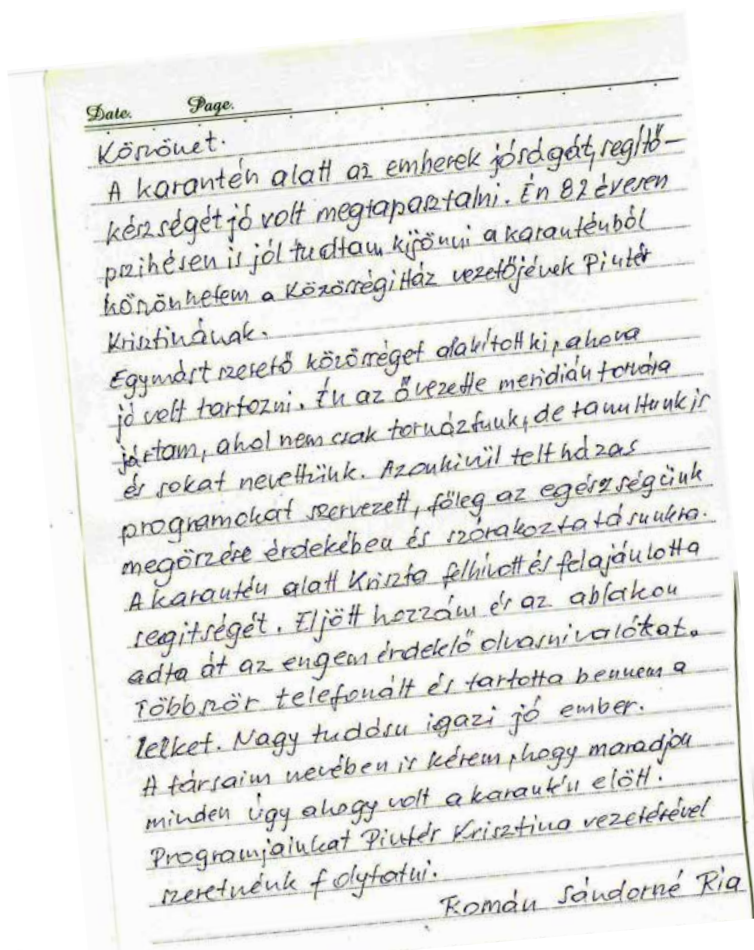 Date. Page.
Köszönet.
A karantén alatt az emberek jóságát, segítő-
készségét jó volt megtapasztalni. Én 82 évesen
pszihésen is jól tudtam kijönni a karanténból
köszönhetem a Közösségi Ház vezetőjének Pintér
Krisztinának.
Egymást szerető közösséget alakított ki, ahova
jó volt tartozni. Én az ő vezette meridián tornára
jártam, ahol nem csak tornáztunk, de tanultunk is
és sokat nevettünk. Azonkivül telt házas
programokat szervezett, főleg az egészségünk
megőrzére érdekében és szórakoztatásunkra.
A karantén alatt Kriszta felhivott és felajánlotta
segitségét. Eljött hozzám és az ablakon
adta át az engem érdeklő olvasnivalókat.
Többször telefonált és tartotta bennem a
lelket. Nagy tudásu igazi jó ember.
A társaim nevében is kérem, hogy maradjon
minden úgy ahogy volt a karantén előtt.
Programjainkat Pintér Krisztina vezetésével
szeretnénk folytatni.
Román Sándorné Ria